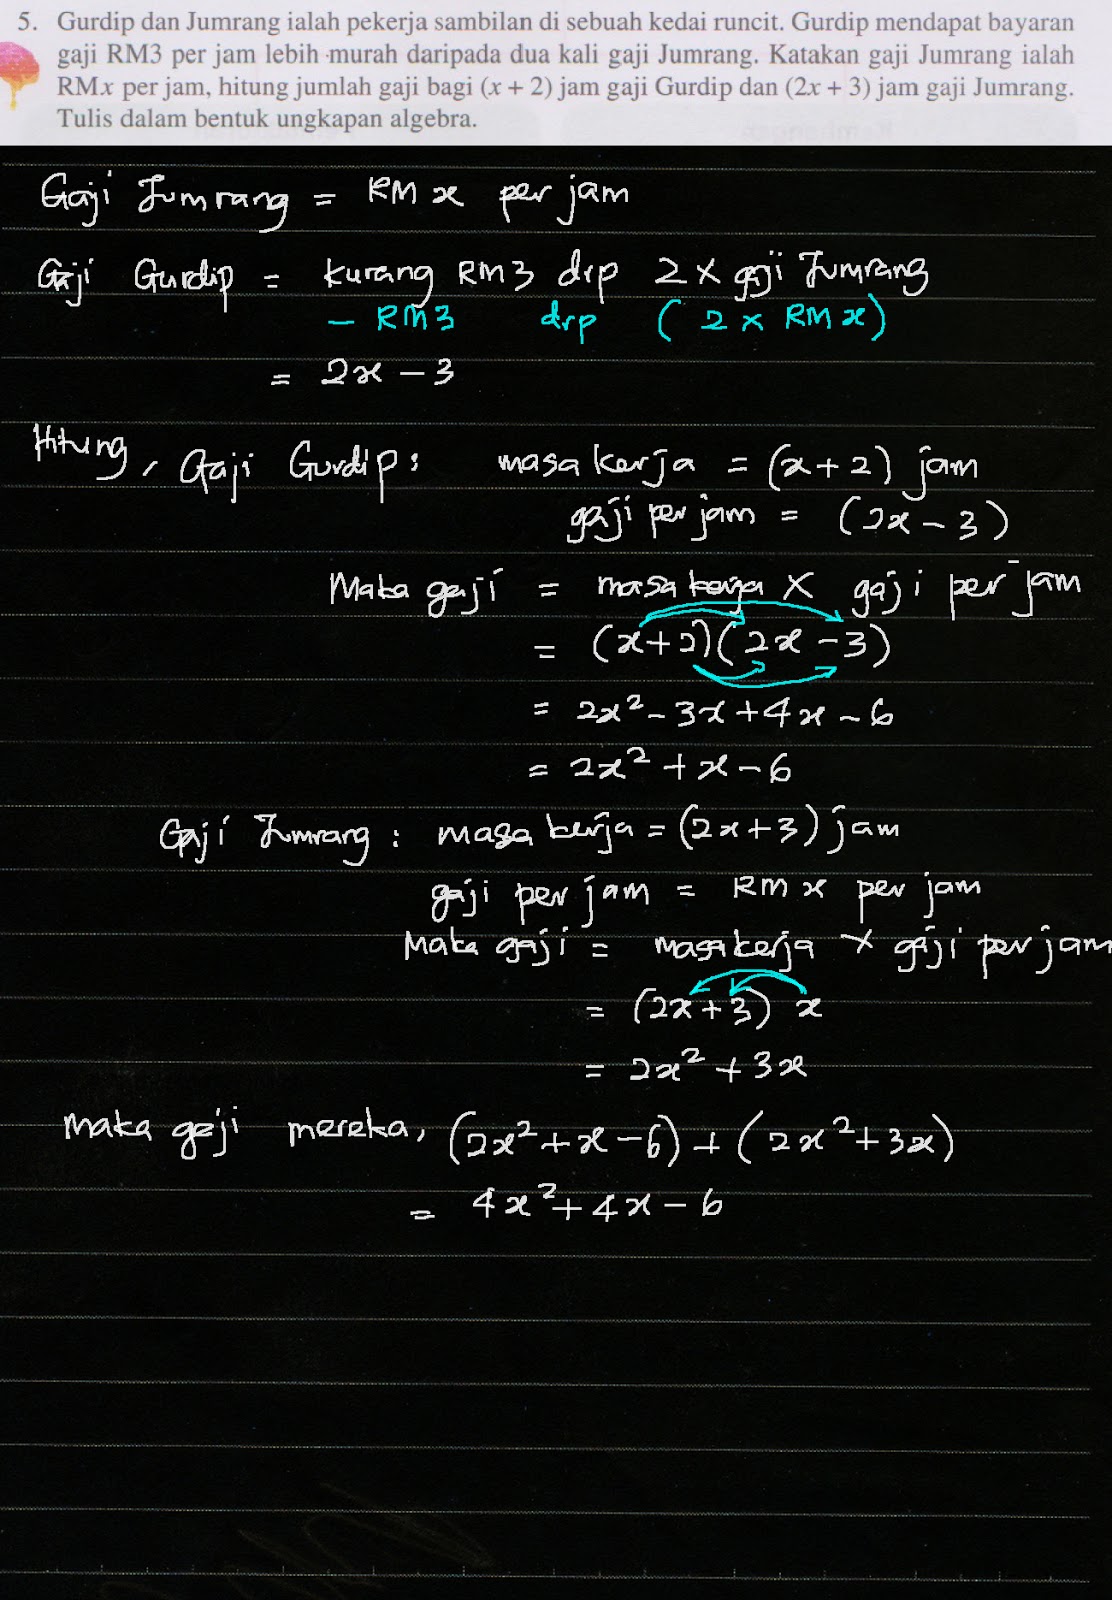 5. Gurdip dan Jumrang ialah pekerja sambilan di sebuah kedai runcit. Gurdip mendapat bayaran
gaji RM3 per jam lebih murah daripada dua kali gaji Jumrang. Katakan gaji Jumrang ialah
RMx per jam, hitung jumlah gaji bagi (x + 2) jam gaji Gurdip dan (2x + 3) jam gaji Jumrang.
Tulis dalam bentuk ungkapan algebra.
Gaji Jumrang = RM x per jam
Gaji Gurdip = kurang RM3 drp 2 × gaji Jumrang
- RM3 drp (2 × RM x)
= 2x - 3
Hitung, Gaji Gurdip: masa kerja = (x+2) jam
gaji per jam = (2x - 3)
Maka gaji = masa kerja × gaji per jam
= (x+2)(2x - 3)
= 2x² - 3x + 4x - 6
= 2x² + x - 6
Gaji Jumrang: masa kerja = (2x+3) jam
gaji per jam = RM x per jam
Maka gaji = masa kerja × gaji per jam
= (2x+3) x
= 2x² + 3x
Maka gaji mereka, (2x² + x - 6) + (2x² + 3x)
= 4x² + 4x - 6